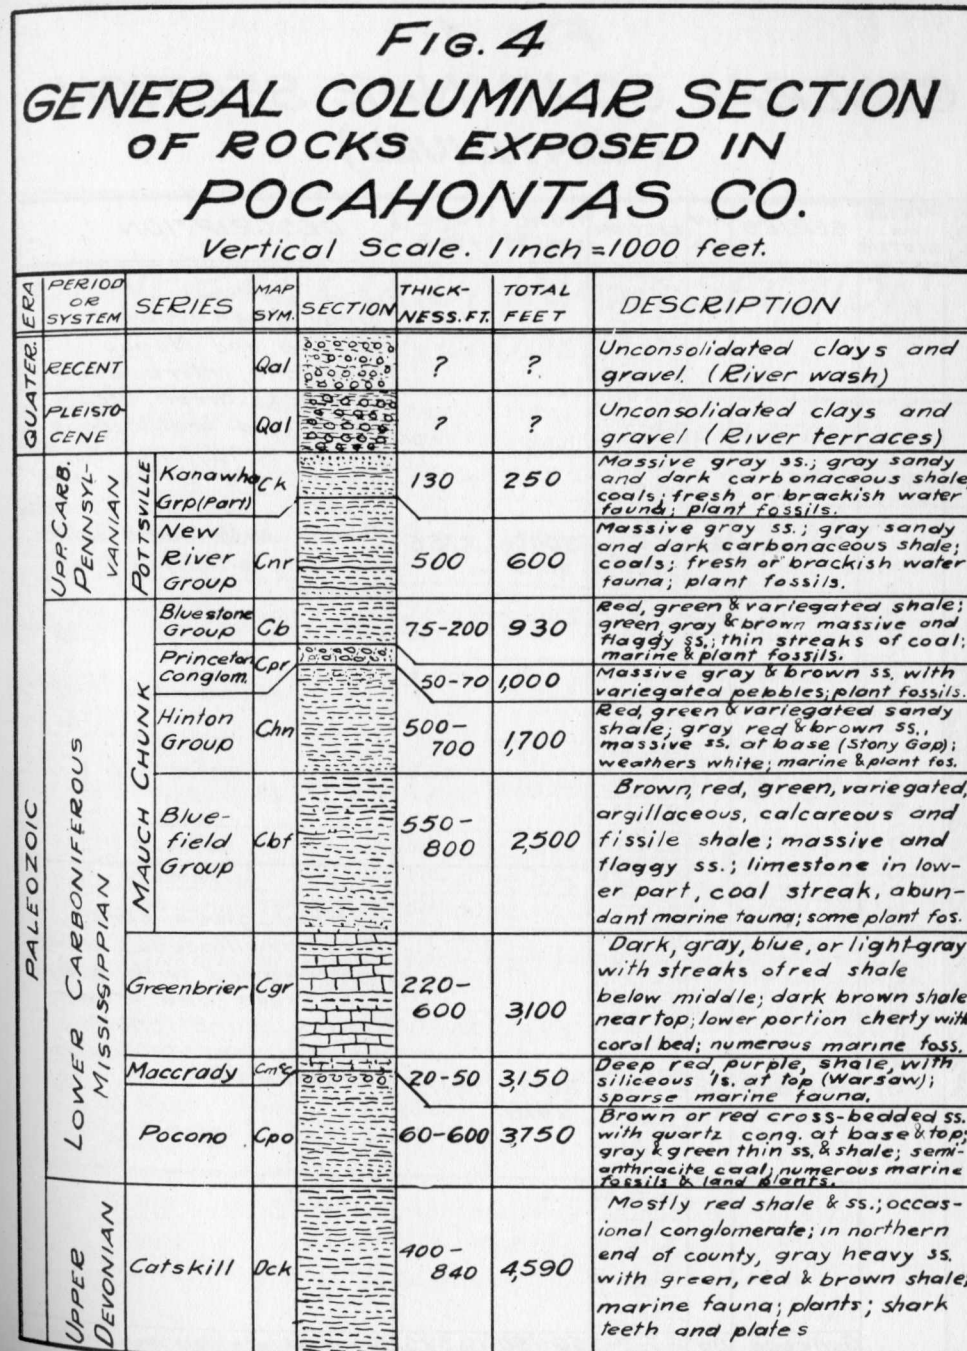 FIG. 4
GENERAL COLUMNAR SECTION
OF ROCKS EXPOSED IN
POCAHONTAS CO.
Vertical Scale. 1 inch = 1000 feet.
ERA
PERIOD
OR
SYSTEM
SERIES
MAP
SYM.
SECTION
THICK-
NESS.FT.
TOTAL
FEET
DESCRIPTION
QUATER.
RECENT
Qal
?
?
Unconsolidated clays and
gravel. (River wash)
PLEISTO-
CENE
Qal
?
?
Unconsolidated clays and
gravel (River terraces)
PALEOZOIC
UPP. CARB.
PENNSYL-
VANIAN
POTTSVILLE
Kanawha
Grp(Part)
Ck
130
250
Massive gray ss.; gray sandy
and dark carbonaceous shale
coals; fresh or brackish water
fauna; plant fossils.
New
River
Group
Cnr
500
600
Massive gray ss.; gray sandy
and dark carbonaceous shale;
coals; fresh or brackish water
fauna; plant fossils.
LOWER CARBONIFEROUS
MISSISSIPPIAN
MAUCH CHUNK
Bluestone
Group
Cb
75-200
930
Red, green & variegated shale;
green gray & brown massive and
flaggy ss.; thin streaks of coal;
marine & plant fossils.
Princeton
Conglom.
Cpr
50-70
1,000
Massive gray & brown ss. with
variegated pebbles; plant fossils.
Hinton
Group
Chn
500-
700
1,700
Red, green & variegated sandy
shale; gray red & brown ss.,
massive ss. at base (Stony Gap);
weathers white; marine & plant fos.
Blue-
field
Group
Cbf
550-
800
2,500
Brown, red, green, variegated,
argillaceous, calcareous and
fissile shale; massive and
flaggy ss.; limestone in low-
er part, coal streak, abun-
dant marine fauna; some plant fos.
Greenbrier
Cgr
220-
600
3,100
Dark, gray, blue, or light-gray
with streaks of red shale
below middle; dark brown shale
near top; lower portion cherty with
coral bed; numerous marine foss.
Maccrady
Cmc
20-50
3,150
Deep red, purple, shale, with
siliceous ls. at top (Warsaw);
sparse marine fauna.
Pocono
Cpo
60-600
3,750
Brown or red cross-bedded ss.
with quartz cong. at base & top;
gray & green thin ss, & shale; semi-
anthracite coal; numerous marine
fossils & land plants.
UPPER
DEVONIAN
Catskill
Dck
400-
840
4,590
Mostly red shale & ss.; occas-
ional conglomerate; in northern
end of county, gray heavy ss.
with green, red & brown shale;
marine fauna; plants; shark
teeth and plates